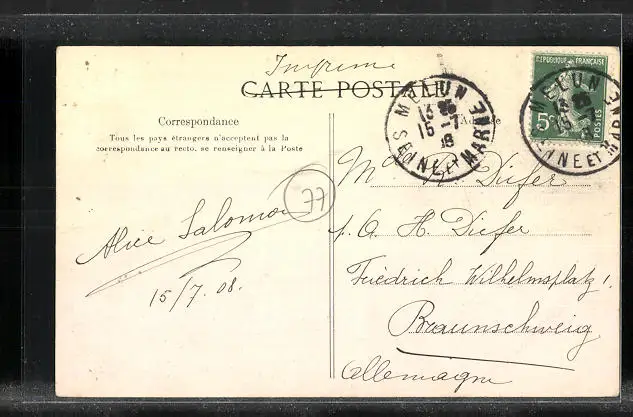 Imprimé
CARTE POSTALE
Correspondance
Tous les pays étrangers n'acceptent pas la
correspondance au recto. se renseigner à la Poste
Alice Salomon
15/7.08.
77
MELUN
13 25
15-7
SEINE ET MARNE
REPUBLIQUE FRANÇAISE
5c
POSTES
MELUN
SEINE ET MARNE
H. Diefer
A. H. Diefer
Friedrich Wilhelmsplatz 1.
Braunschweig
Allemagne